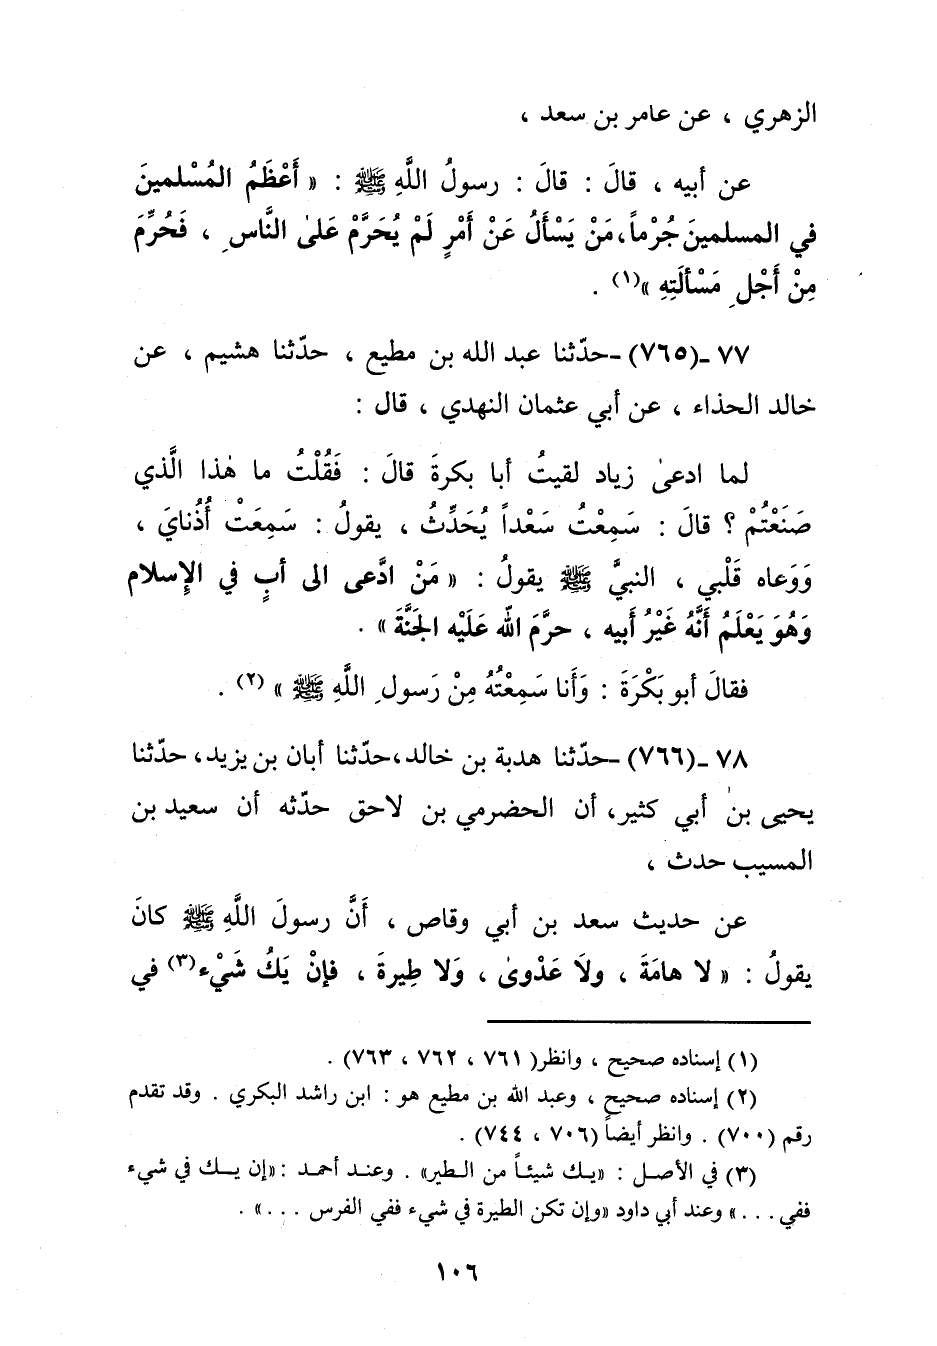 الزهري ، عن عامر بن سعد ،
عن أبيه ، قالَ : قالَ : رسولُ اللَّهِ ﷺ : « أَعْظَمُ المُسْلمينَ
في المسلمينَ جُرْماً، مَنْ يَسْأَلُ عَنْ أَمْرٍ لَمْ يُحَرَّمْ عَلىٰ النَّاسِ ، فَحُرِّمَ
مِنْ أَجْلِ مَسْألَتِهِ »(١) .
٧٧ ـ(٧٦٥) ـ حدّثنا عبد الله بن مطيع ، حدّثنا هشيم ، عن
خالد الحذاء ، عن أبي عثمان النهدي ، قال :
لما ادعىٰ زياد لقيتُ أبا بكرةَ قالَ : فَقُلْتُ ما هٰذا الَّذي
صَنَعْتُمْ ؟ قالَ : سَمِعْتُ سَعْداً يُحَدِّثُ ، يقولُ : سَمِعَتْ أُذُنايَ ،
وَوَعاه قَلْبي ، النبيَّ ﷺ يقولُ : « مَنْ ادَّعى الى أبٍ في الإِسلام
وَهُوَ يَعْلَمُ أَنَّهُ غَيْرُ أَبيه ، حرَّمَ الله عَلَيْه الجَنَّةَ » .
فقالَ أبو بَكْرَةَ : وَأَنا سَمِعْتُهُ مِنْ رَسولِ اللَّهِ ﷺ » (٢) .
٧٨ ـ(٧٦٦) ـ حدّثنا هدبة بن خالد، حدّثنا أبان بن يزيد، حدّثنا
يحيى بن أبي كثير، أن الحضرمي بن لاحق حدّثه أن سعيد بن
المسيب حدث ،
عن حديث سعد بن أبي وقاص ، أَنَّ رسولَ اللَّهِ ﷺ كانَ
يقولُ : « لا هامَةَ ، ولاَ عَدْوىٰ ، وَلا طِيرةَ ، فإنْ يَكُ شَيْء(٣) في
(١) إسناده صحيح ، وانظر( ٧٦١ ، ٧٦٢ ، ٧٦٣) .
(٢) إسناده صحيح ، وعبد الله بن مطيع هو : ابن راشد البكري . وقد تقدم
رقم (٧٠٠) . وانظر أيضاً (٧٠٦ ، ٧٤٤) .
(٣) في الأصل : «يـك شيئاً من الـطير» . وعنـد أحمـد : «إن يـك في شيء
ففي . . . » وعند أبي داود «وإن تكن الطيرة في شيء ففي الفرس . . . » .
١٠٦